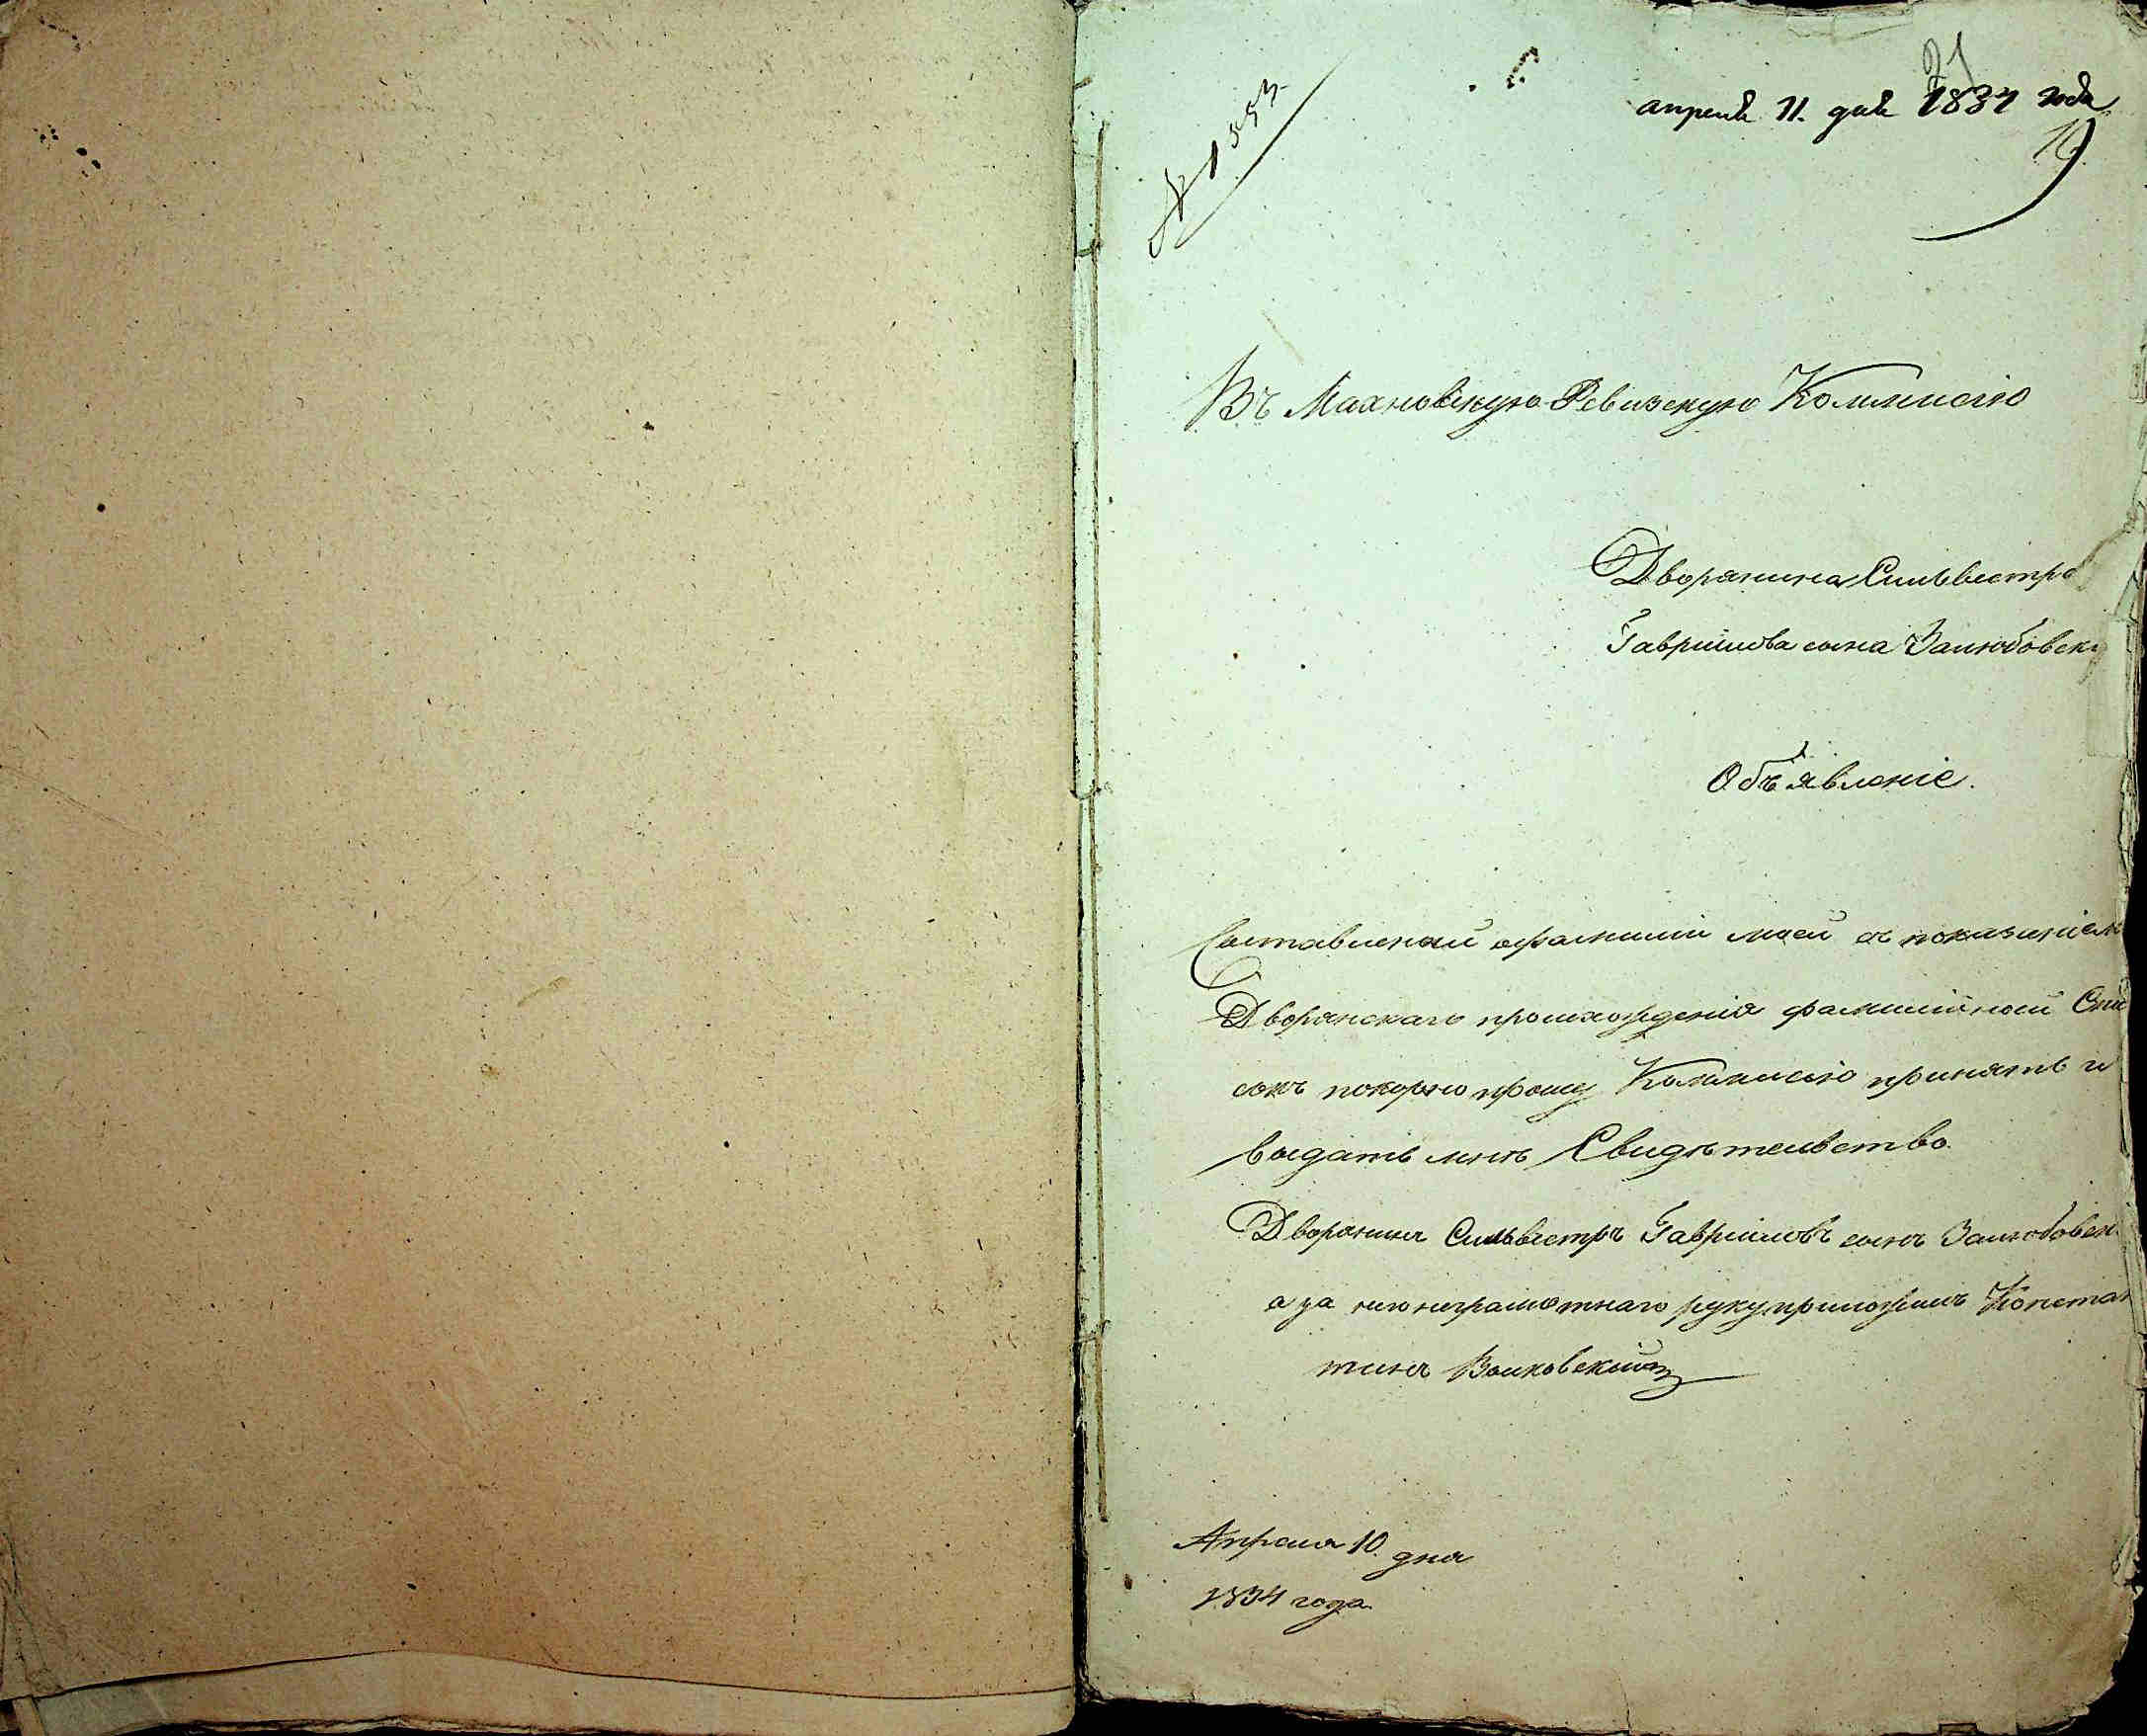 № 1553
21
апреля 11. дня 1834 года
19
Въ Махновскую Ревизскую Коммисію
Дворянина Сильвестра
Гавріилова сына Залюбовск
Объявленіе.
Составленый о фамиліи моей съ показаніемъ
Дворянскаго происхожденія фамилійной Спи
сокъ покорно прошу Коммисію принять и
выдать мнѣ Свидѣтельство
Дворянинъ Сильвестръ Гавріиловъ сынъ Залюбовск
а за него неграмотнаго руку приложилъ Констан
тинъ Волковскій
Апреля 10 дня
1834 года